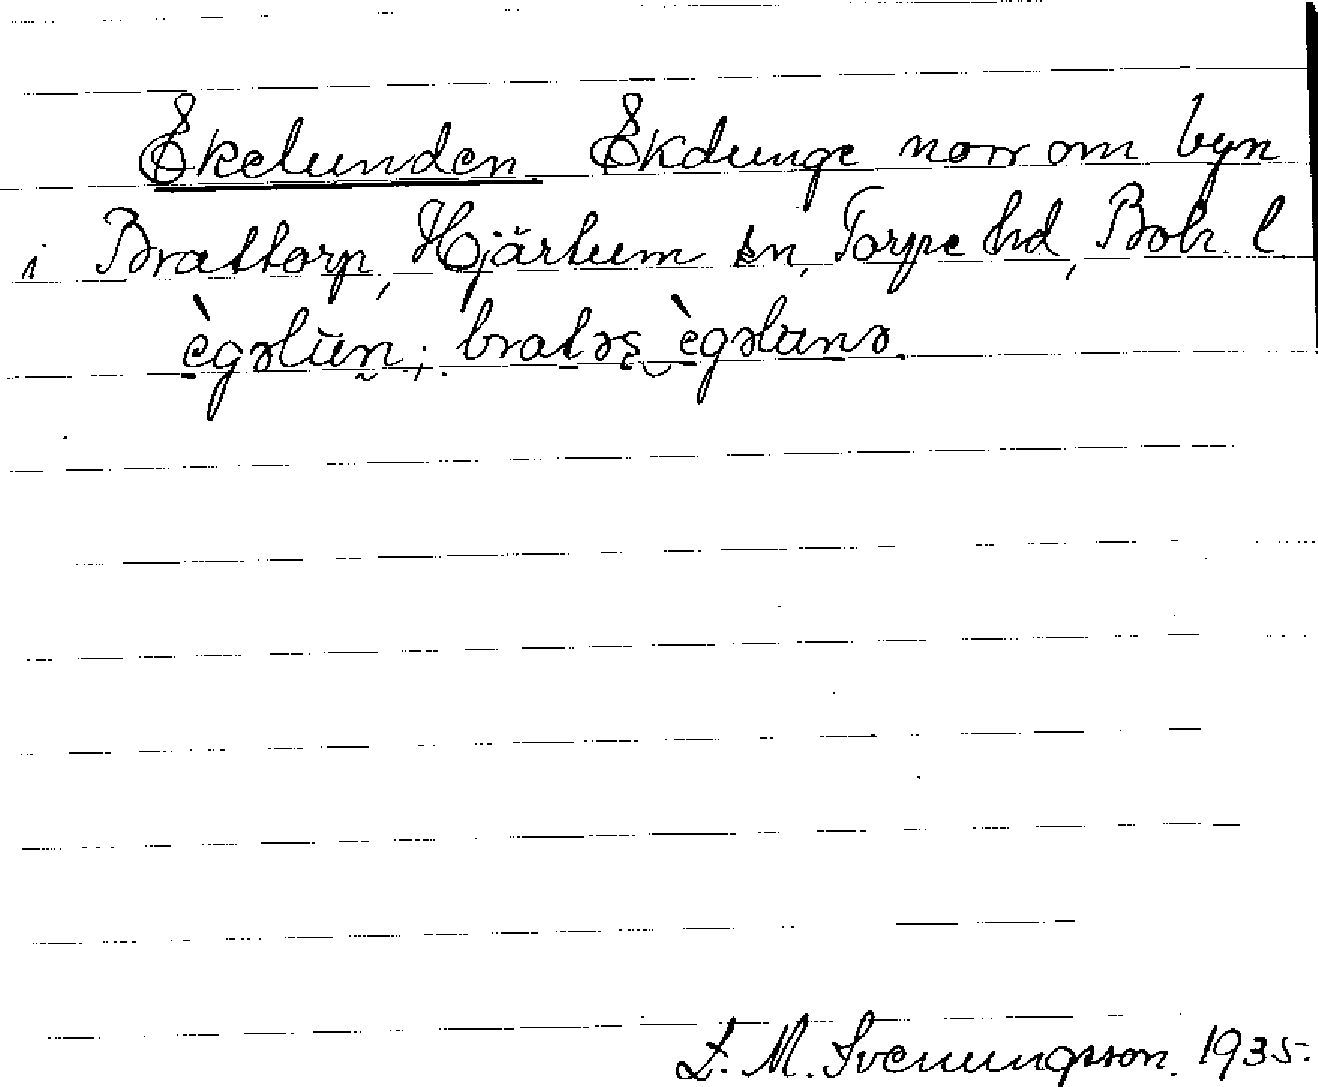 Ekelunden. Ekdunge norr om byn
i Brattorp, Hjärtum sn, Torpe hd, Boh. l.
ègəlūn̰; bratəʂ‿ègəlūnə.
J. M. Svenungsson. 1935.